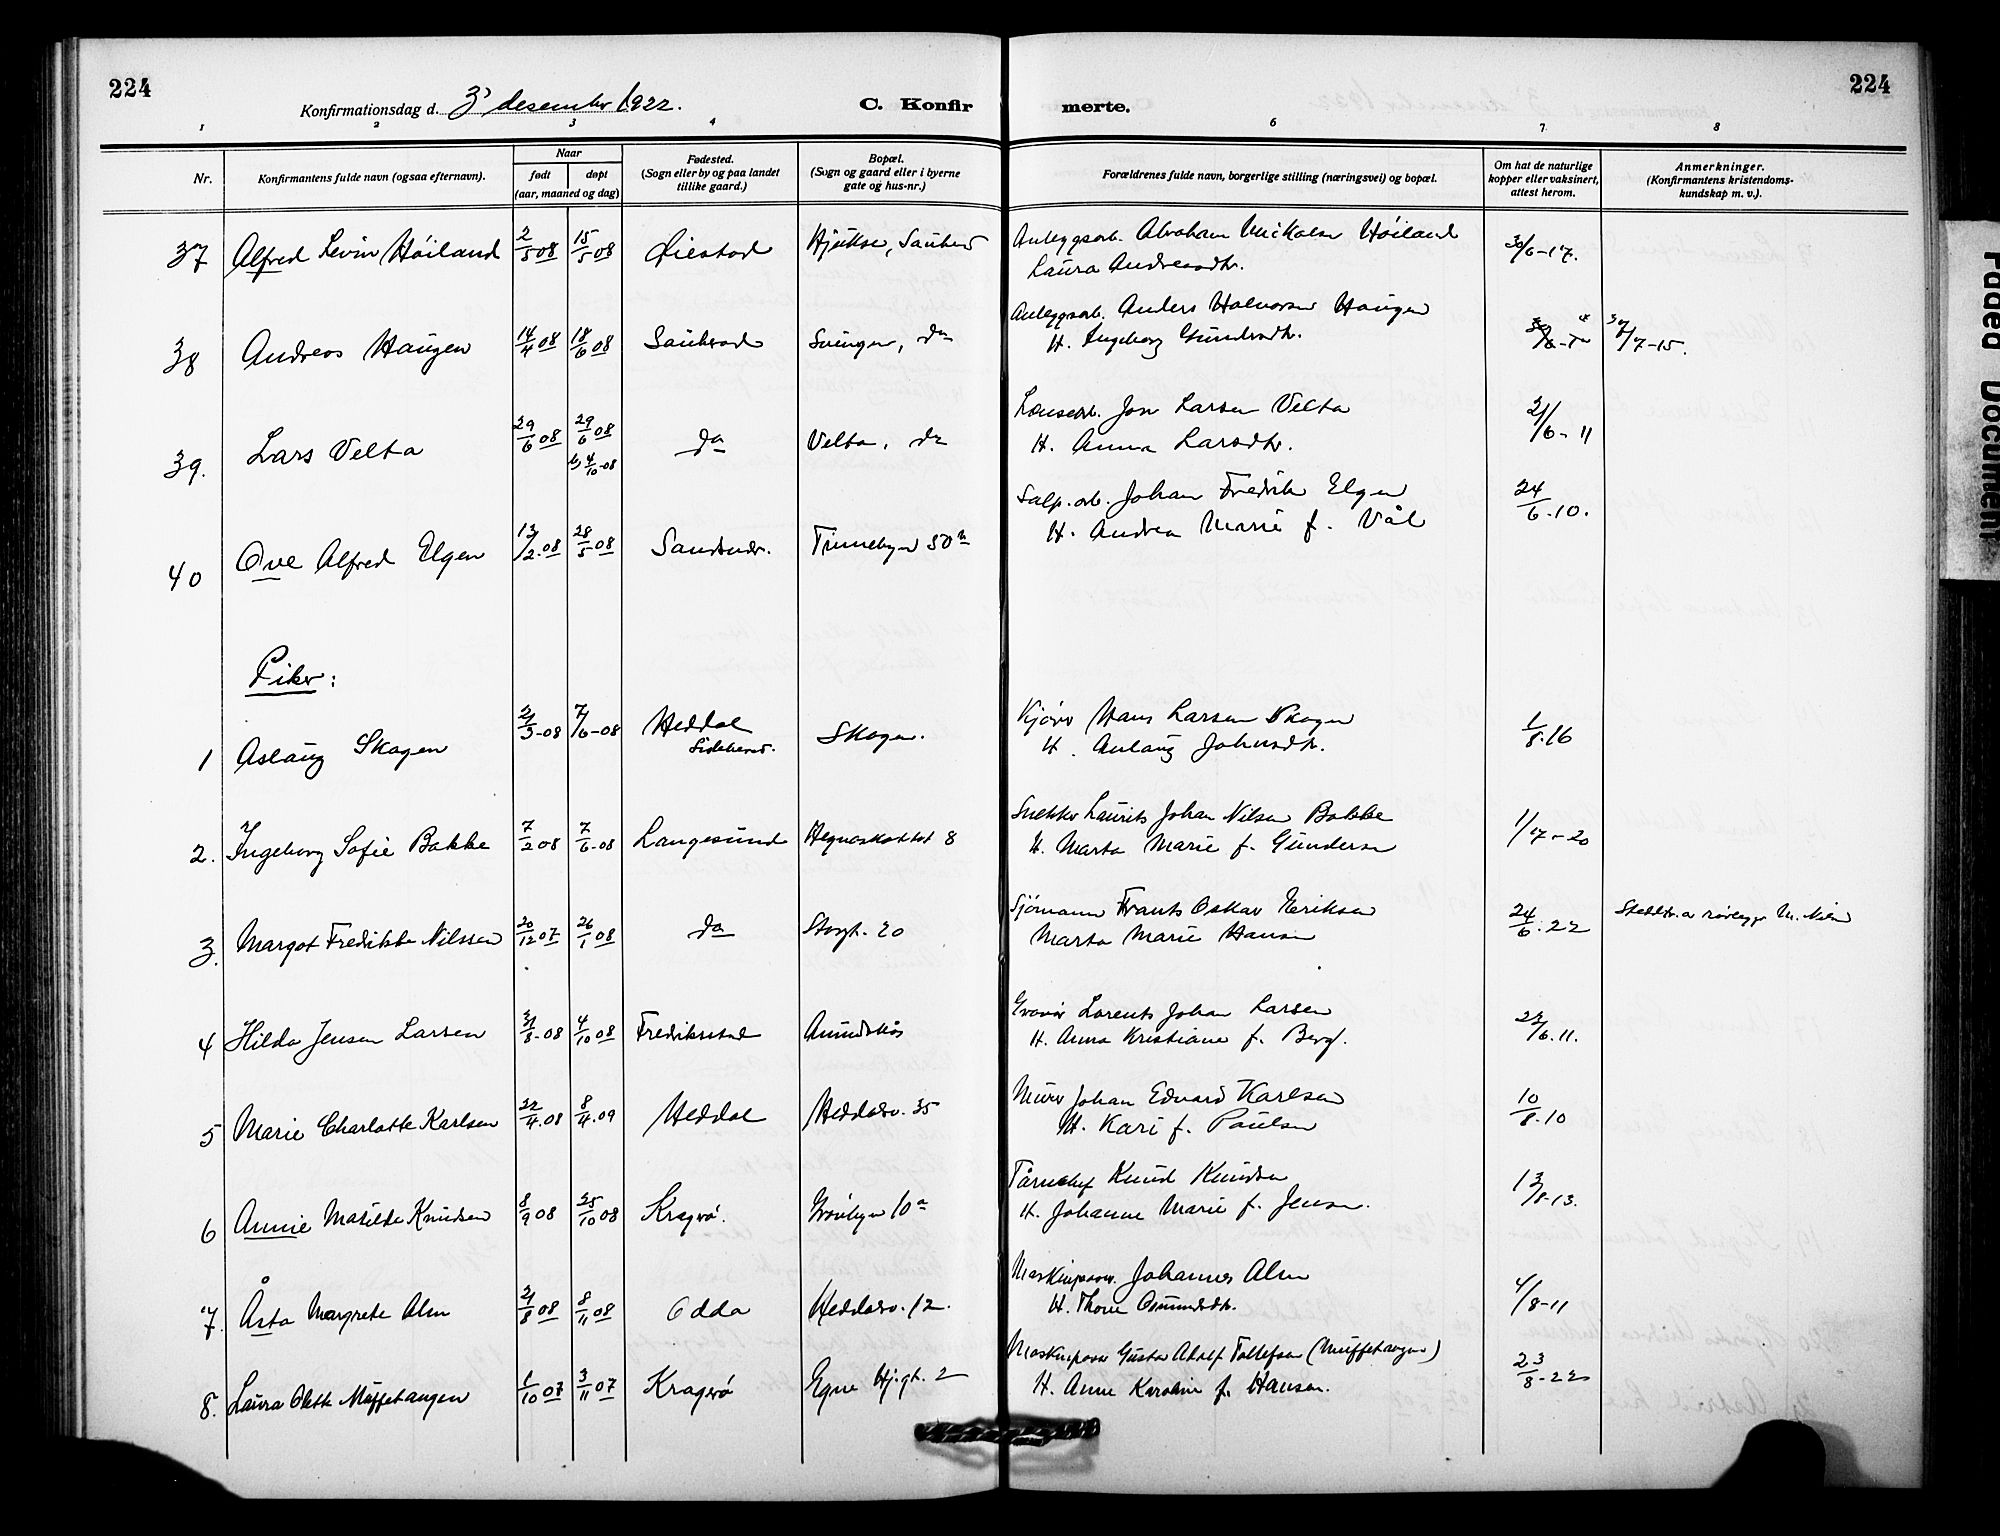 224
224
Konfirmationsdag d. 3' desember 1922.
C. Konfirmerte.
1 2 3 4 6 7 8
Nr.
Konfirmantens fulde navn (ogsaa efternavn).
Naar
født
døpt
(aar, maaned og dag)
Fødested.
(Sogn eller by og paa landet
tillike gaard.)
Bopæl.
(Sogn og gaard eller i byerne
gate og hus-nr.)
Forældrenes fulde navn, borgerlige stilling (næringsvei) og bopæl.
Om hat de naturlige
kopper eller vaksinert,
attest herom.
Anmerkninger.
(Konfirmantens kristendoms-
kundskap m. v.).
37 Alfred Levin Høiland 2/5 08 15/5 08 Øiestad Hjukse, Sauherad Anleggsarb. Abraham Mikalsen Høiland 30/6-17.
Laura Andreasdtr.
38 Andreas Haugen 14/4 08 18/6 08 Sauherad Svingen, do Anleggsarb. Anders Halvorsen Haugen 30/7-15.
H. Ingeborg Gundersdtr.
39. Lars Velta 29/6 08 29/6 08 do Velta, do Jon Larsen Velta 21/6-11
4/10-08
H. Anna Larsdtr.
40 Ove Alfred Elgen 13/2.08 28/5 08 Tinnebyen 50 Salp. arb. Johan Fredrik Elgen 24/6.10.
H. Andrea Marie f. Vål
Piker:
1 Aslaug Skogen 2/3-08 7/6-08 Heddal Skogen. Kjører Hans Larsen Skogen 1/8.16
H. Aslaug Johnsdtr.
2. Ingeborg Sofie Bakke 7/2 08 7/6-08 Langesund 8 Snekker Laurits Johan Nilsen Bakke 1/7-20
H. Marta Marie f. Gundersen
3. Margot Fredikke Nilssen 20/12 07 26/1 08 do Storgt. 20 Sjømann Frants Oskar Eriksen 24/6.22 Stedd. a rørlegger M. Nilsen
Marta Marie Hansen
4 Hilda Jensen Larsen 31/8-08 4/10 08 Fredrikstad Amundskås Lorents Johan Larsen 22/6.11.
H. Anna Kristiane f. Berg.
5 Marie Charlotte Karlsen 22/4.08 8/4.09 Heddal Heddalsv. 35 Murer Johan Edvard Karlsen 10/8.10
H. Kari f. Paulsen
6 Annie Matilde Knudsen 8/9 08 25/10 08 Kragerø. Grønbyen 10a Knud Knudsen 13/8-13.
H. Johanne Marie f. Jensen.
7. Åsta Margrete Alm 21/8 08 8/11 08 Odda Heddalsv. 12. Maskinpasser Johannes Alm 4/8-11
H. Thone Osmundsdtr.
8. Laura Olette Müffetangen 1/10 07 3/11 07 Kragerø Egne Hj.gt. 2 Maskinpasser Gustav Adolf Tollefsen (Müffetangen) 23/8-22
H. Anne Karoline f. Hansen.
Paaed Document